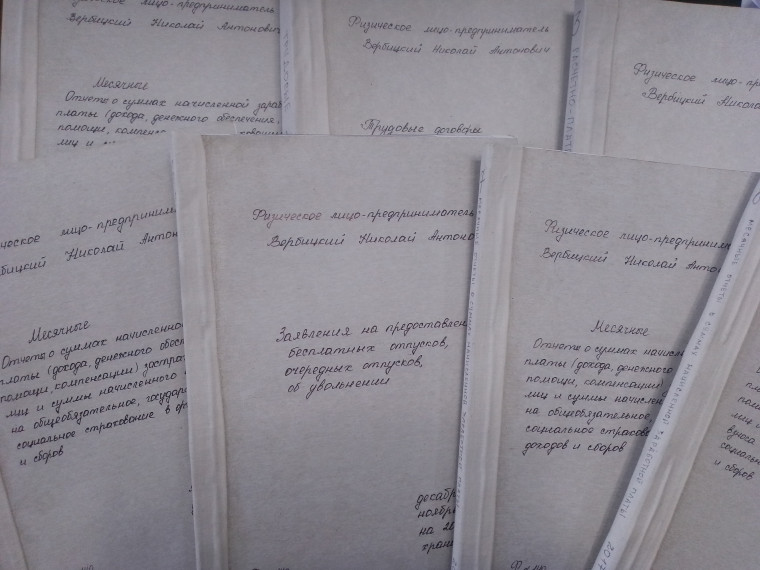 лицо-предприниматель
Вербицкий Николай Антонович
Месячные
Отчете о суммах начисленной зара
платы (дохода, денежного обеспечения,
помощи, компенс
лиц и
Физическое лицо-предприниматель
Вербицкий Николай Антонович
Трудовые договоры
Физическое лицо-пр
Вербицкий Никола
ческое лицо-предприним
бицкий Николай Антон
Месячные
Отчете о суммах начисленно
платы (дохода, денежного обес
помощи, компенсации) застра
лиц и суммы начисленного
на общеобязательное, государ
социальное страхование в ор
и сборов
Физическое лицо-предприниматель
Вербицкий Николай Антоно
Заявления на предоставлен
бесплатных отпусков,
очередных отпусков,
об увольнении
декабр
ноябр
на 2
хран
Физическое лицо-предприним
Вербицкий Николай Антон
Месячные
Отчете о суммах начисл
платы (дохода, денежного
помощи, компенсации)
лиц и суммы начислен
на общеобязательное,
социальное страхова
доходов и сборов
месячные отчеты о суммах начисленной заработной платы 2017
п
плат
пом
лиц и
взноса
социальн
и сборов